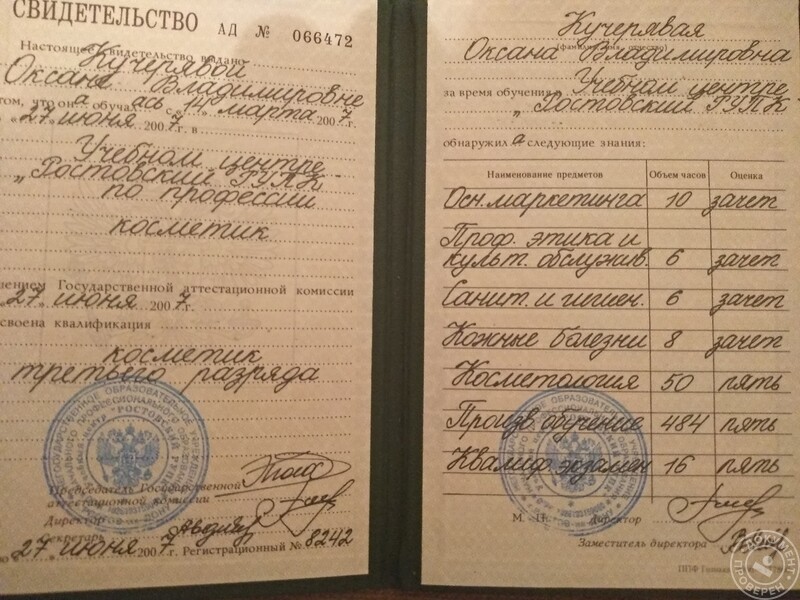 СВИДЕТЕЛЬСТВО АД № 066472
Настоящее свидетельство выдано
Кучерявой
Оксане Владимировне
том, что она обучалась с „14" марта 2007г.
„27" июня 2007г. в
Учебном центре
„Ростовский ГУПК"
по профессии
косметик
шением Государственной аттестационной комиссии
„27" июня 2007г.
своена квалификация
косметик
третьего разряда
Председатель Государственной
аттестационной комиссии
Директор
Секретарь
27 июня 2007г. Регистрационный № 8242
Кучерявая
Оксана Владимировна
за время обучения в Учебном центре
„Ростовский ГУПК"
обнаружила следующие знания:
Наименование предметов Объем часов Оценка
Осн. маркетинга 10 зачет
Проф. этика и
культ. обслужив. 6 зачет
Санит. и гигиен. 6 зачет
Кожные болезни 8 зачет
Косметология 50 пять
Произв. обучение 484 пять
Квалиф. экзамен 16 пять
М. П. Директор
Заместитель директора
ДОКУМЕНТ
ПРОВЕРЕН